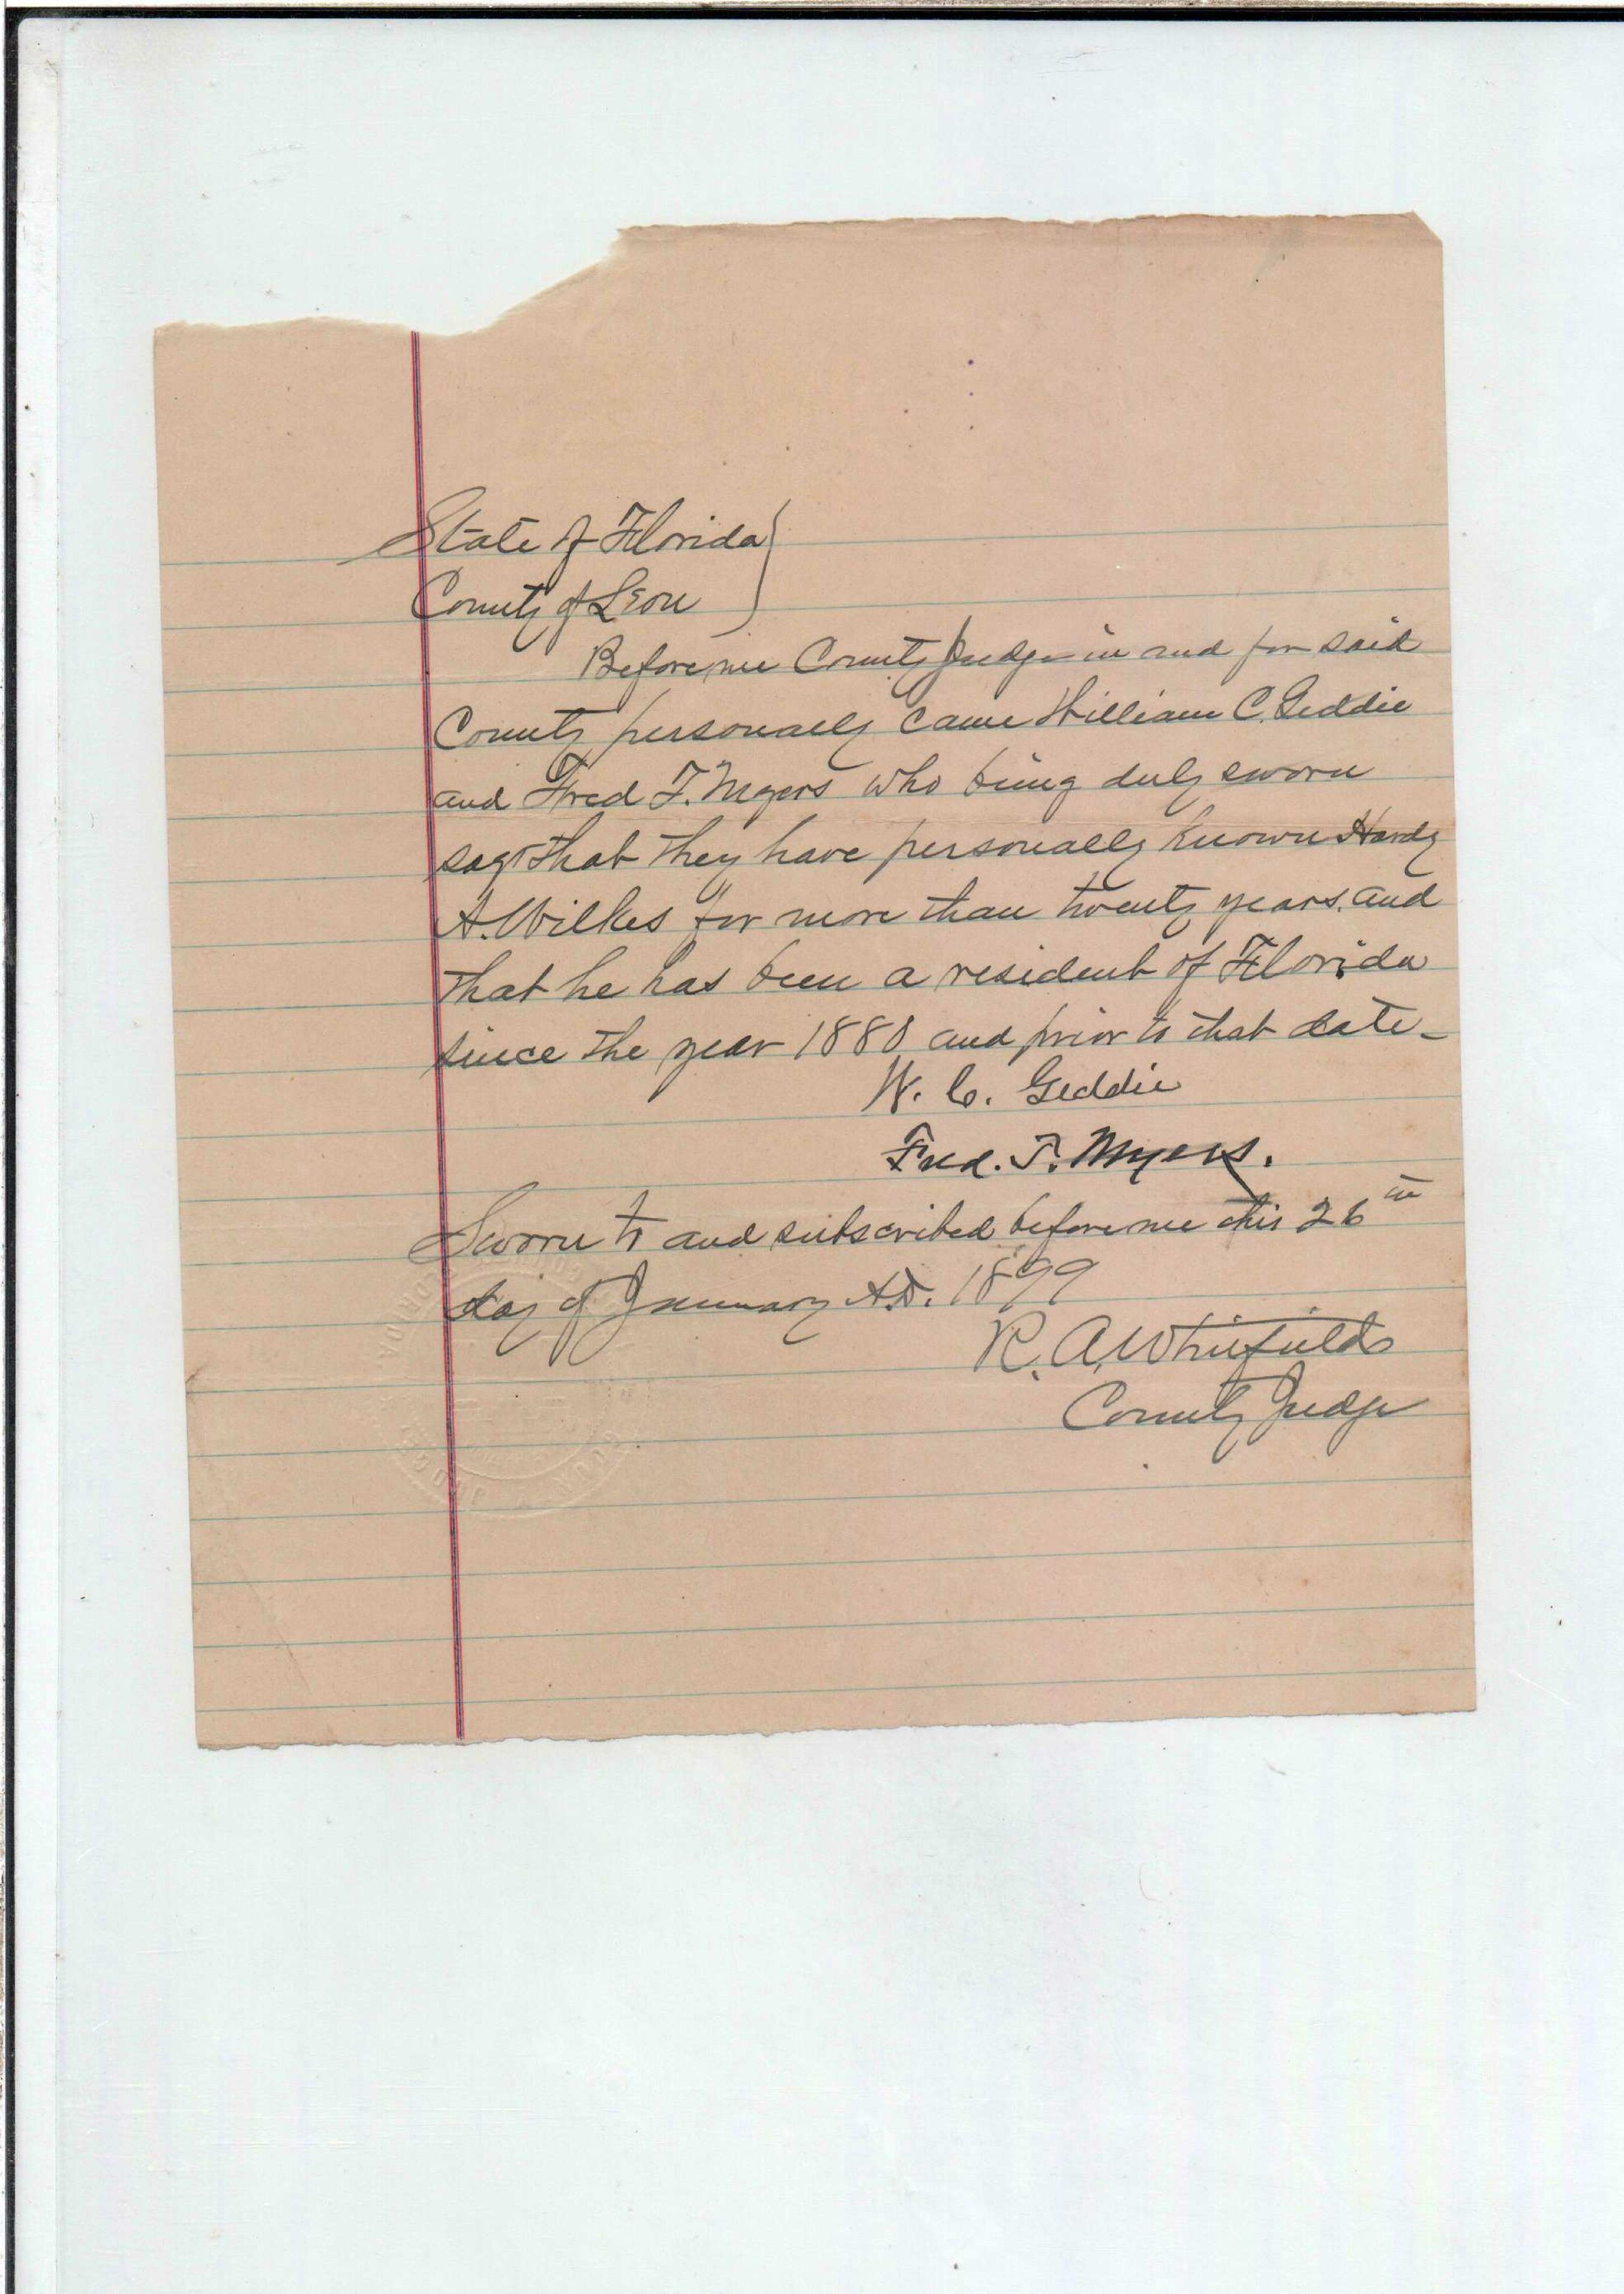 State of Florida
County of Leon
Before me County Judge in and for said
County personally came William C. Geddie
and Fred T. Myers who being duly sworn
say that they have personally known Hardy
A. Wilkes for more than twenty years. and
that he has been a resident of Florida
since the year 1880 and prior to that date-
W. C. Geddie
Fred. T. Myers.
Sworn to and subscribed before me this 26th
day of January A.D. 1899
R. A. Whitfield
County Judge